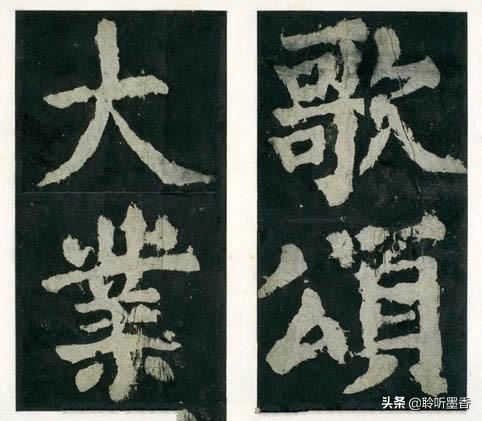 歌頌
大業
头条 @聆听墨香